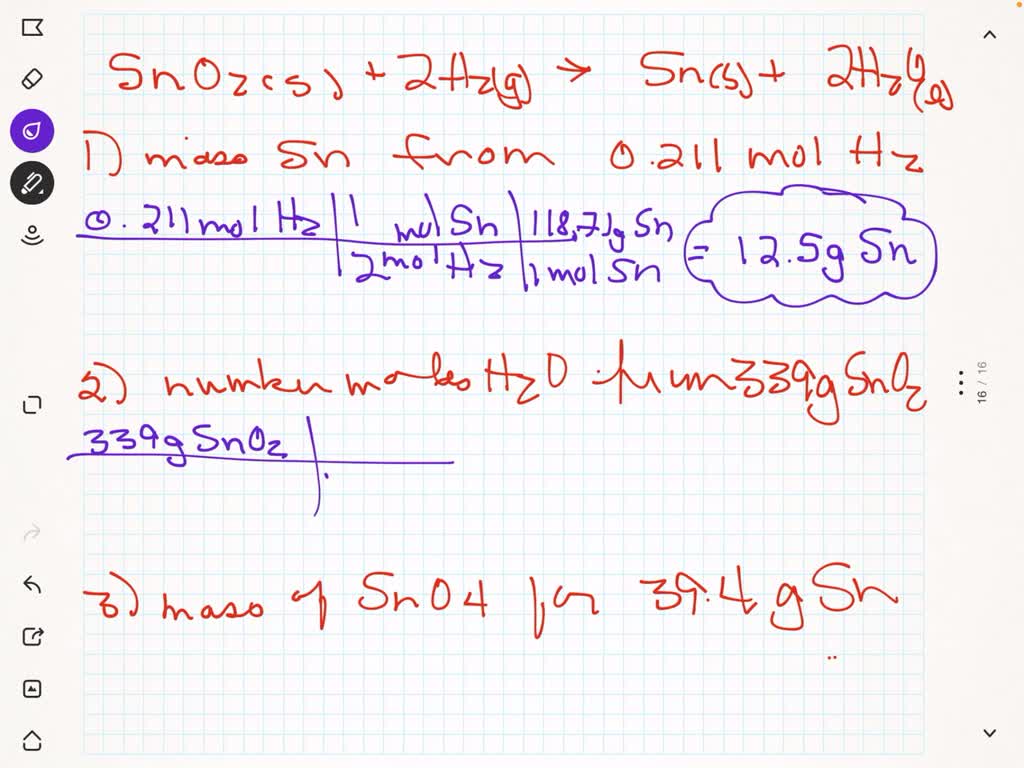 SnO2(s) + 2H2(g) → Sn(s) + 2H2O(l)
1) mass Sn from 0.211 mol H2
0.211 mol H2 | 1 mol Sn | 118.71g Sn
2 mol H2 | 1 mol Sn = 12.5g Sn
2) number moles H2O from 339g SnO2
339g SnO2
3) mass of SnO4 for 39.4 g Sn
16 / 16